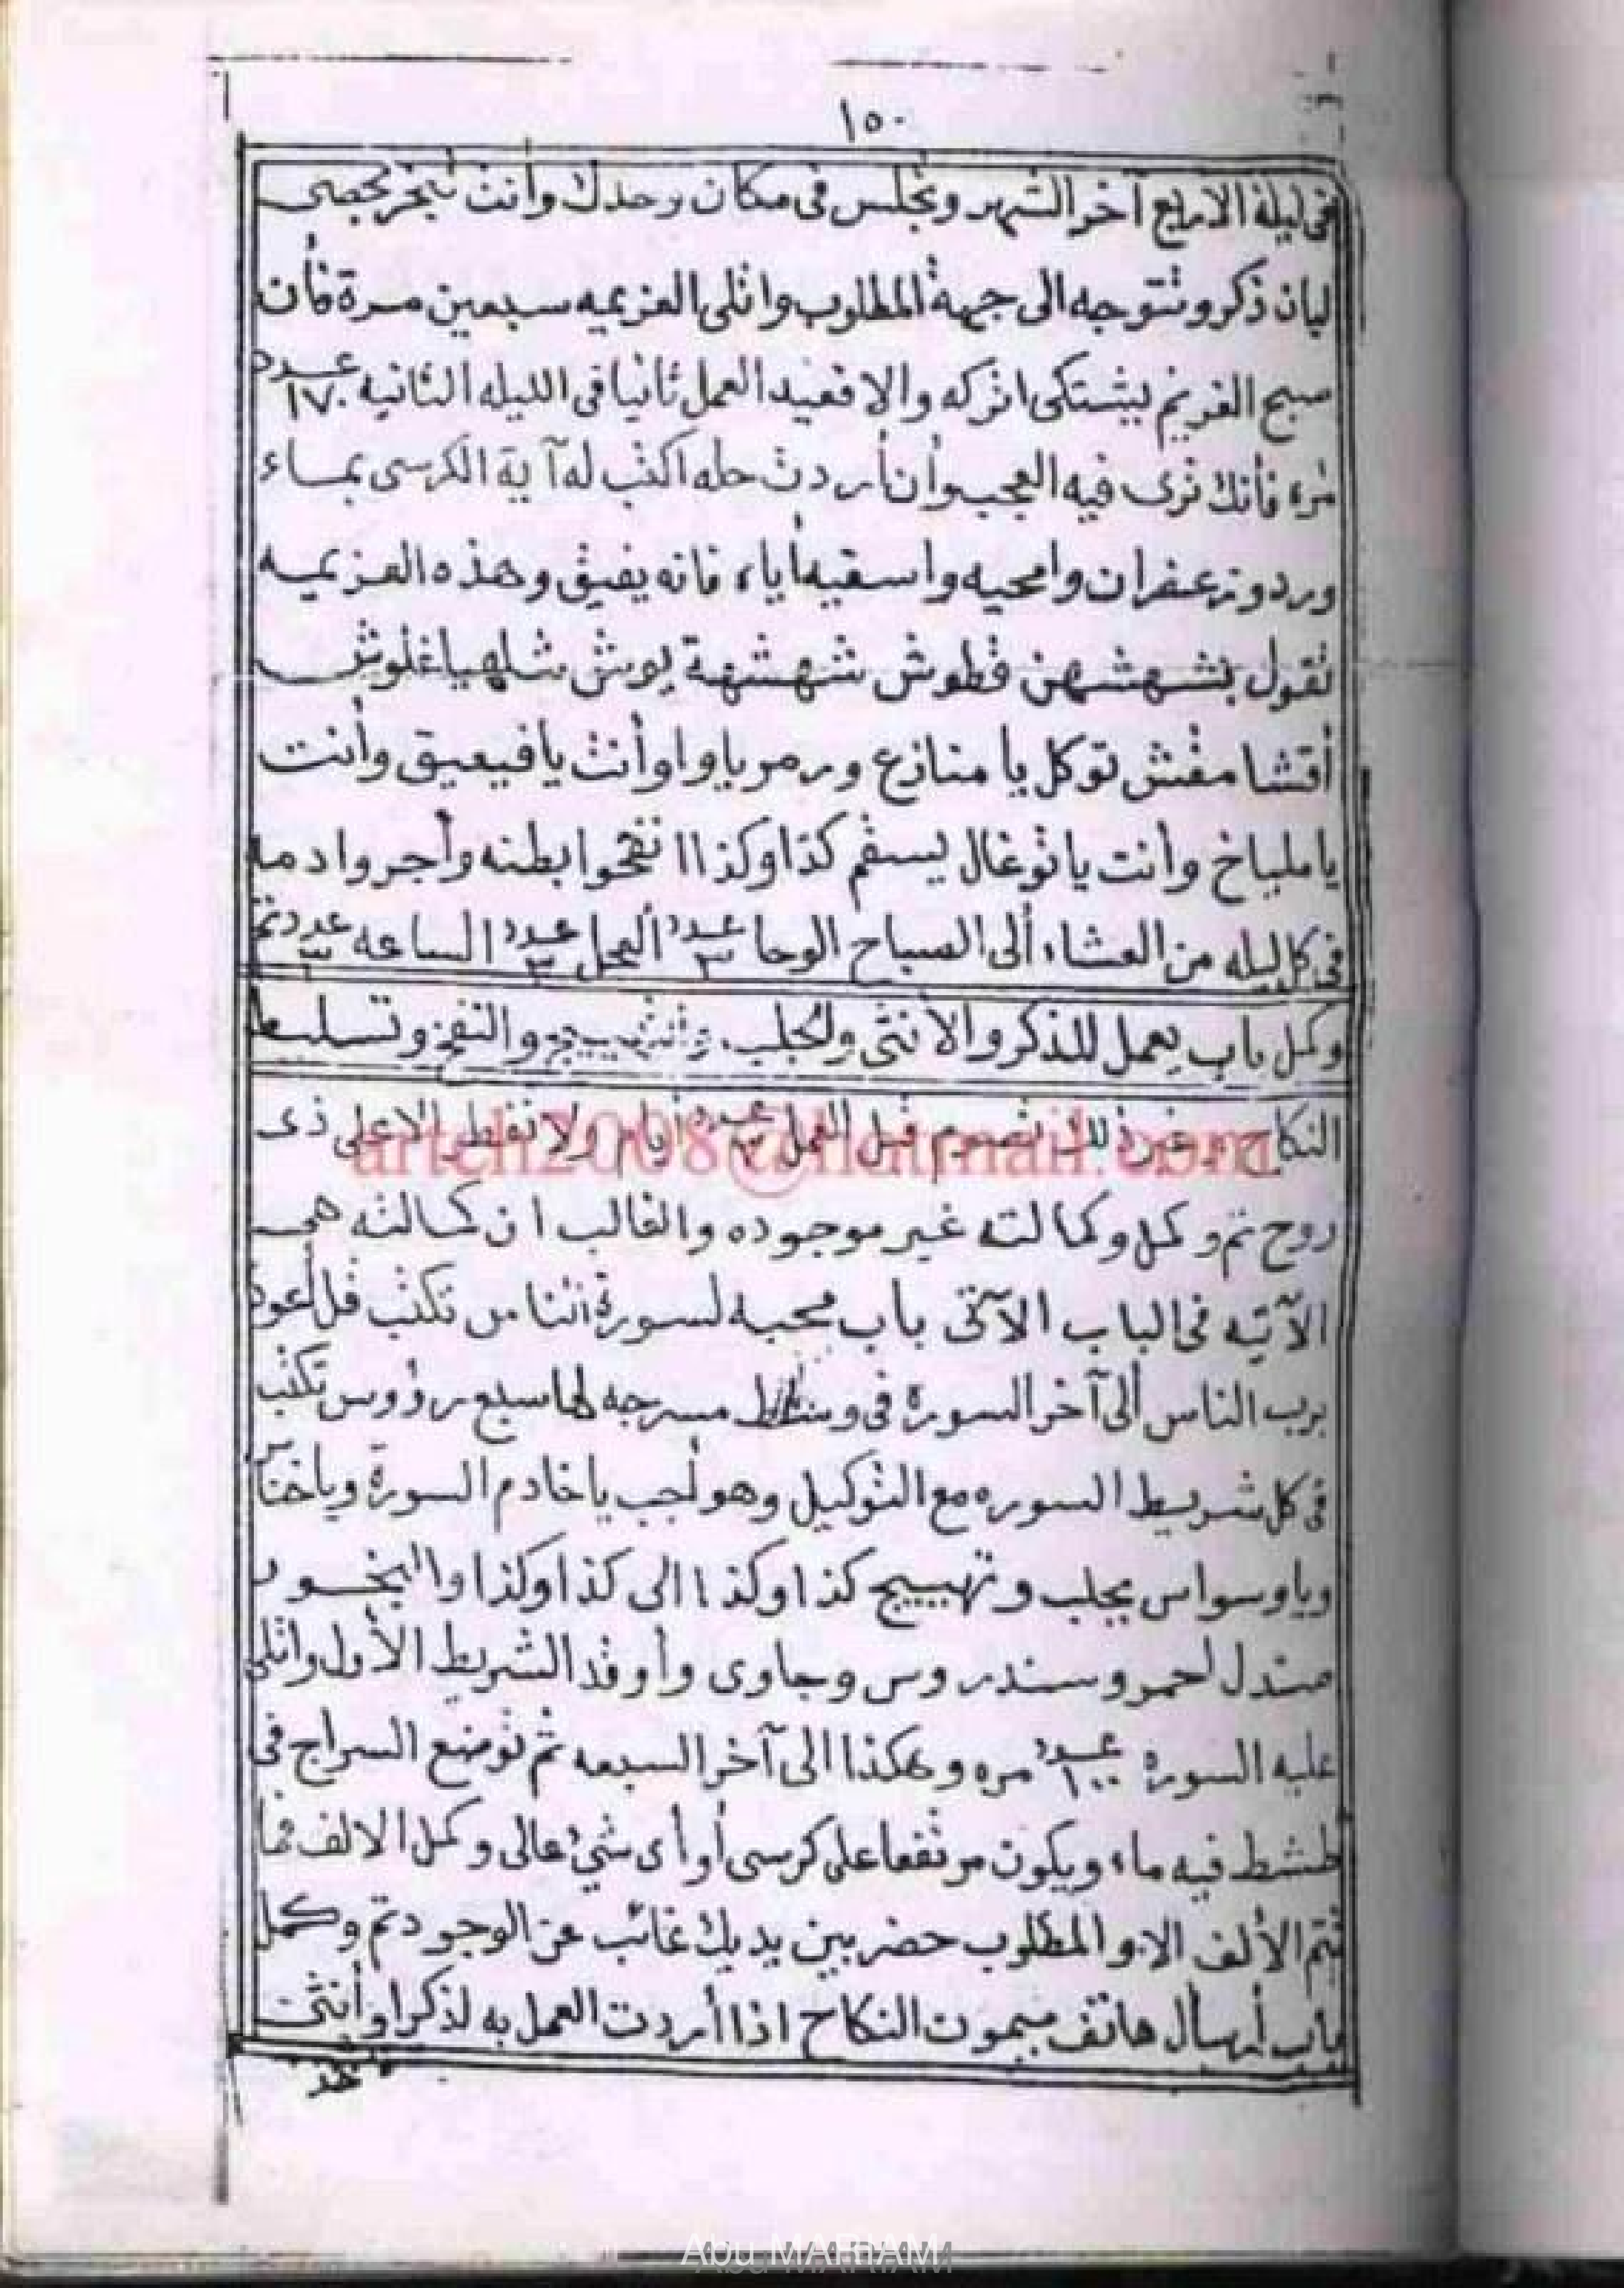 ١٥٠
فى ليلة الاربع آخر الشهر وتجلس فى مكان وحدك وأنت تبخر بحصى
لبان ذكر وتتوجه الى جهة المطلوب واتلى العزيمه سبعين مرة فأن
سبح الغريم يشتكى اتركه والا فعيد العمل ثانيا فى الليله الثانيه عدد ١٧٠
مره فأنك ترى فيه العجب وأن أردت حله اكتب له آية الكرسى بماء
ورد وزعفران وامحيه واسقيه أياه فانه يفيق وهذه العزيميه
تقول بشهشهن فطوش شهشهة يوش شلهيا غلوش
أقشا مفش توكل يا منازع ورمريا واوأنت يا فيعيق وأنت
يا مليباخ وأنت يا توغال ليسقم كذا وكذا انفخوا بطنه وأجروا دمه
فى كل ليله من العشاء ألى الصباح الوحا عدد ٣ العجل عدد ٣ الساعه عدد ٣ تم
وكمل باب يعمل للذكر والأنثى ولجلب والتهييج والنفخ وتسليط
النكاح وغير ذلك تصوم قبل العمل عدد ٣ أيام ولا تفطر الا على ذى
روح تم وكمل وكمالته غير موجوده والغالب ان كمالته هى
الآتيه فى الباب الآتى باب محبه لسورة الناس تكتب قل أعوذ
برب الناس ألى آخر السورة فى وسط مسرجه لها سبع رؤوس تكتب
فى كل شريط السوره مع التوكيل وهو أجب يا خادم السورة ويا خناس
ويا وسواس بجلب وتهييج كذا وكذا الى كذا وكذا والبخور
صندل أحمر وسندروس وجاوى وأوقد الشريط الأول واتلى
عليه السورة عدد ١٠٠ مره وهكذا الى آخر السبعه ثم توضع السراج فى
طشط فيه ماء ويكون مرتفعا على كرسى أو أى شئ عالى وكمل الالف فما
تتم الألف الا والمطلوب حضر بين يديك غائب عن الوجود تم وكمل
باب أرسال هاتف ميمون النكاح اذا أردت العمل به لذكر او أنثى
artch2008@hotmail.com
Abu MARIAM